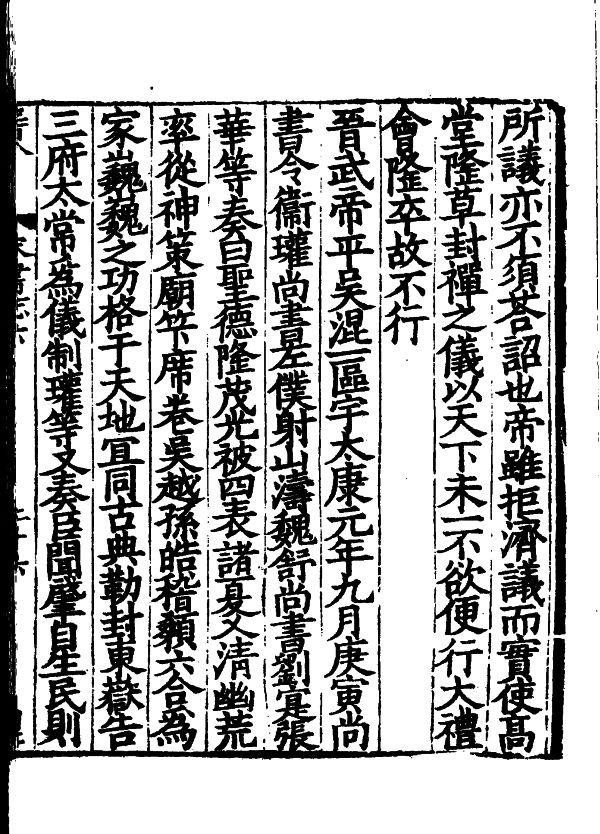 所議亦不須荅詔也帝雖拒濟議而實使髙
堂隆草封禪之儀以天下未一不欲便行大禮
會隆卒故不行
晉武帝平吳混一區宇太康元年九月庚寅尚
書令衞瓘尚書左僕射山濤魏舒尚書劉寔張
華等奏曰聖德隆茂光被四表諸夏乂清幽荒
率從神策廟筭席卷吳越孫皓稽顙六合爲
家巍巍之功格于天地宜同古典勒封東嶽告
三府太常爲儀制瓘等又奏臣聞肇自生民則